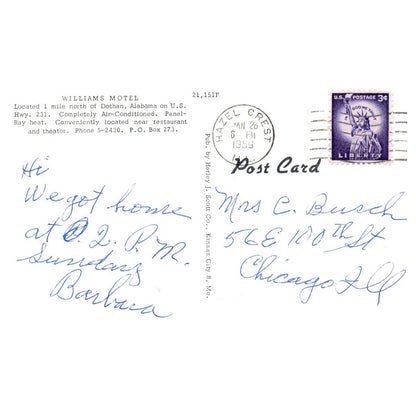 WILLIAMS MOTEL
Located 1 mile north of Dothan, Alabama on U.S.
Hwy. 231. Completely Air-Conditioned. Panel-
Ray heat. Conveniently located near restaurant
and theater. Phone 5-2430. P.O. Box 273.
21,151F
Hi
We got home
at 2 P.M.
Sunday
Barbara
Pub. by Herley J. Scott Co., Kansas City 8, Mo.
HAZEL CREST
JAN 26
6 PM
1959
ILL.
U.S. POSTAGE 3¢
IN GOD WE TRUST
LIBERTY
Post Card
Mrs C. Busch
56 E 100th St
Chicago Ill